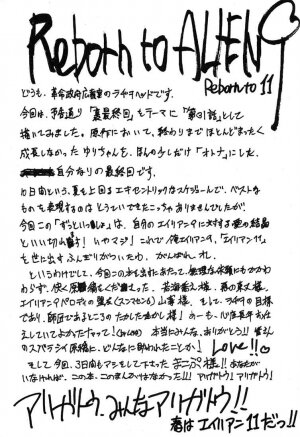 Reborn to ALIEN 9
Reborn to 11
どうも、革命政府広報室のラヂヲヘッドです。
今回は、予告通り「裏最終回」をテーマに「第31話」として
描いてみました。原作において、終わりまでほとんどまったく
成長しなかったゆりちゃんを、ほんの少しだけ「オトナ」にした、
自分なりの最終回です。
10日間という、夏を上回るエキセントリックなスケジュールで、ベストな
ものを表現するのはとうていできたこっちゃありませんでしたが、
今回この「ずっといっしょ」は、自分のエイリアン9に対する愛の結晶
といい切れ
マジ! これで俺エイリアン9、「エイリアン11」
を世に出すふんぎりがついたわ、がんばれ、オレ。
というわけでして、今回この本を出すにあたって、無理なお願いにもかかわ
わらず、快く原稿描いてくださった、
エイリアン9パロディの
山
様、そして、ラヂヲの目標
であり、師匠であるところのたかしたたかし様!
本当にみんな、ありがとう!! 皆さん
のスバラシイ原稿に、どんなに助けられたことか! Love!!
そして今回、3日間もアシをして下った、まこぷ様!! あなたが
いなければ、この本、このまんがはなかった!!! アリガトウ! アリガトウ!
アリガトウ、みんなアリガトウ!!
春はエイリアン11だっ!!